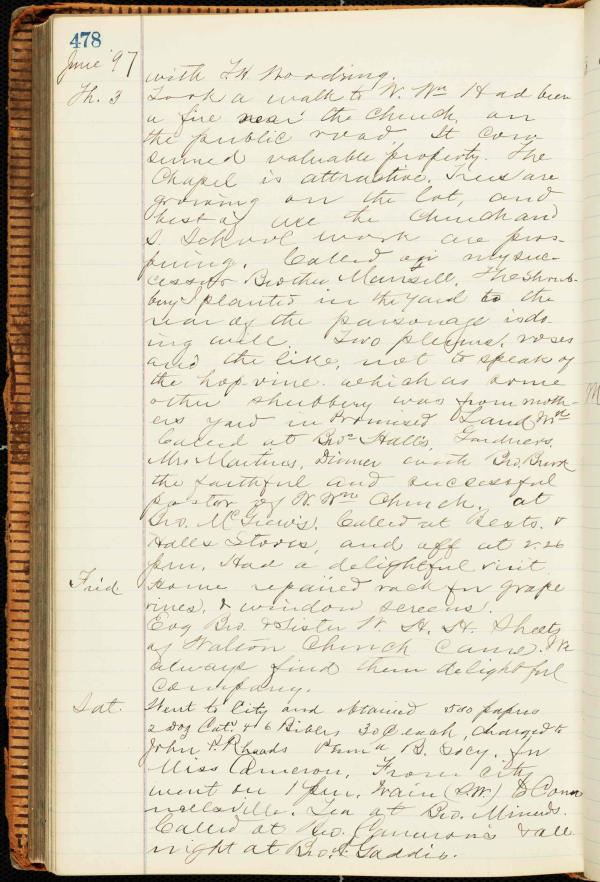 478
June '97
with
Th. 3 Took a walk to W. Wm Had been
a fire near the Church, on
the public road. It con-
sumed valuable property. The
Chapel is attractive. Trees are
growing on the lot, and
best of all the Church and
S. School work are pros-
pering. Called on my suc-
cessor Brother Mansell. The shrub-
bery I planted in the yard to the
rear of the parsonage is do-
ing well. Two plums, roses
and the like, not to speak of
the hop vine which as some
other shubbery was from moth-
ers yard in Promised Land Md
Called at Bros Halls, Gardners,
Mrs Martins, Dinner with Bro.
the faithful and successful
pastor of W. Wm Church, at
Bro. McGrew's. Called at Bests &
Halls Stores, and off at 2:26
p.m. Had a delightful visit
Frid Home repaired rack for grape
vines, & window screens.
Evg Bro. & Sister W. H. H. Sheets
of Walton Church came. We
always find them delightful
company.
Sat. Went to City and obtained 500 papers
2 Dog Cat. & 6 Bibles 30¢ each, charged to
John P. Rhoads Penna B. Socy. for
Miss Cameron. From City
went on 1 p.m. train (S.W.) to Conn
nellsville. Tea at Bro. Minerds.
Called at Bro. Cameron's & all
night at Bro. Gaddis.